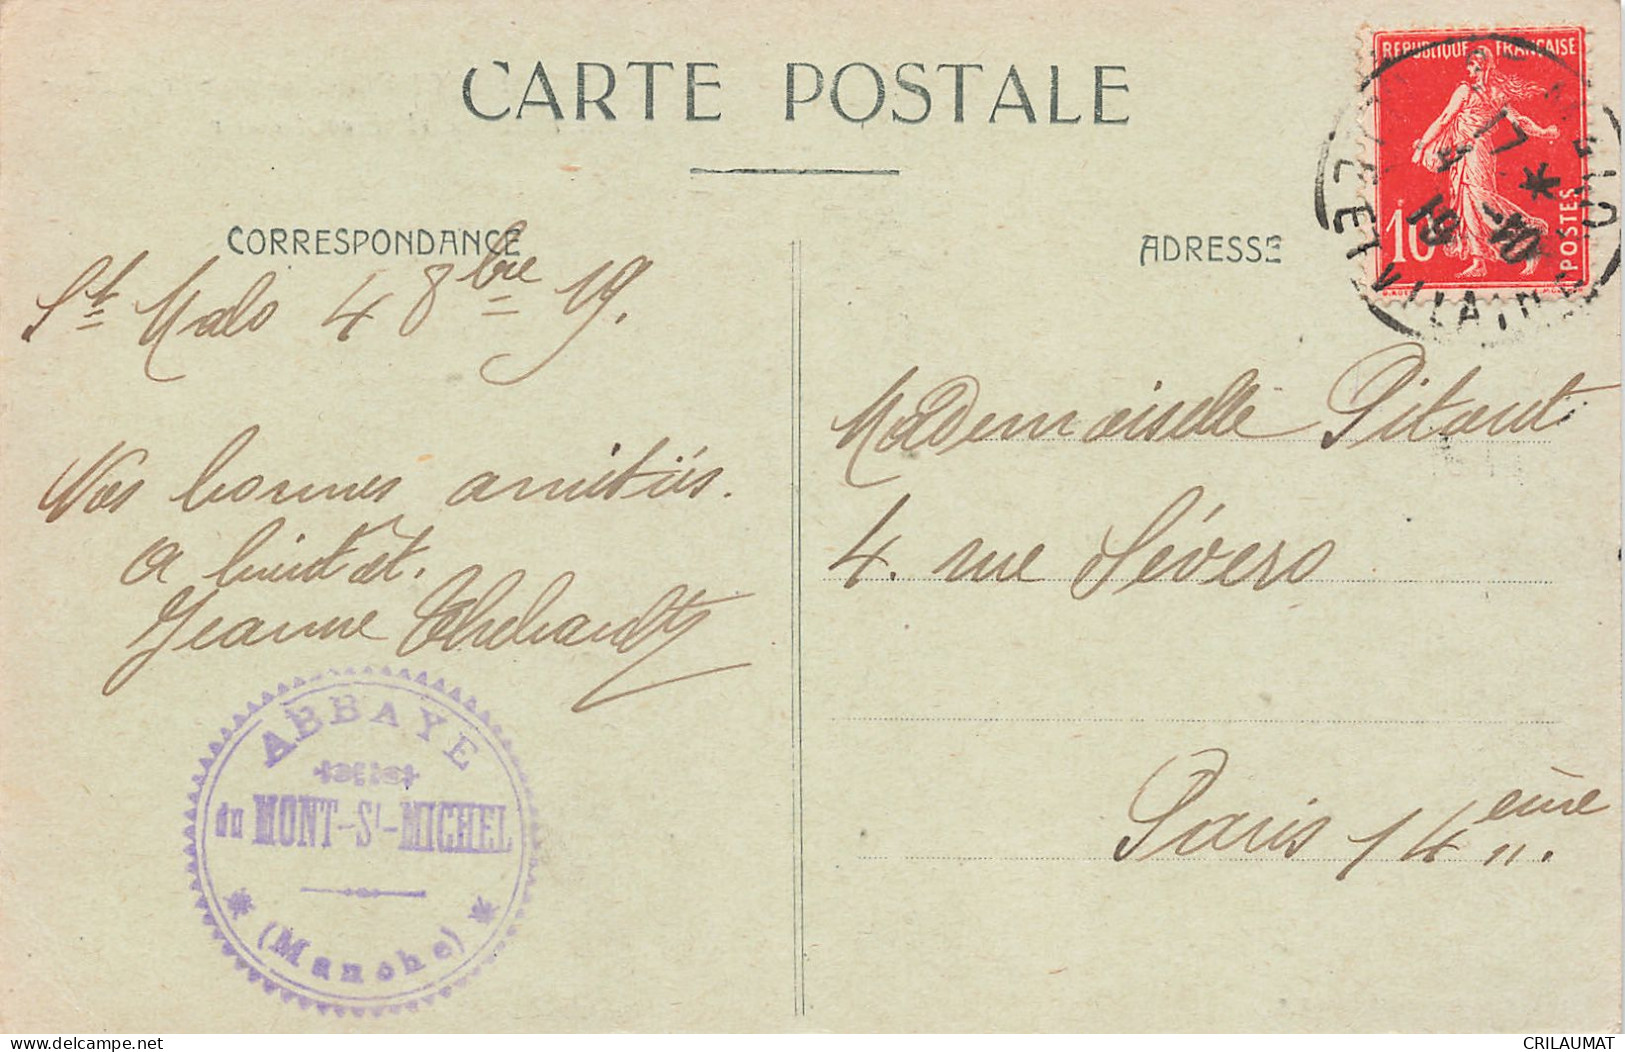 CARTE POSTALE
CORRESPONDANCE
St Malo 4 8bre 19.
Nos bonnes amitiés.
A bientôt.
Jeanne Thébault
ABBAYE
du MONT-St-MICHEL
(Manche)
ADRESSE
REPUBLIQUE FRANÇAISE
10
POSTES
17 *
19
ILLE ET VILAINE
Mademoiselle Pitaut
4. rue Sévero
Paris 14ème.
www.delcampe.net
CRILAUMAT